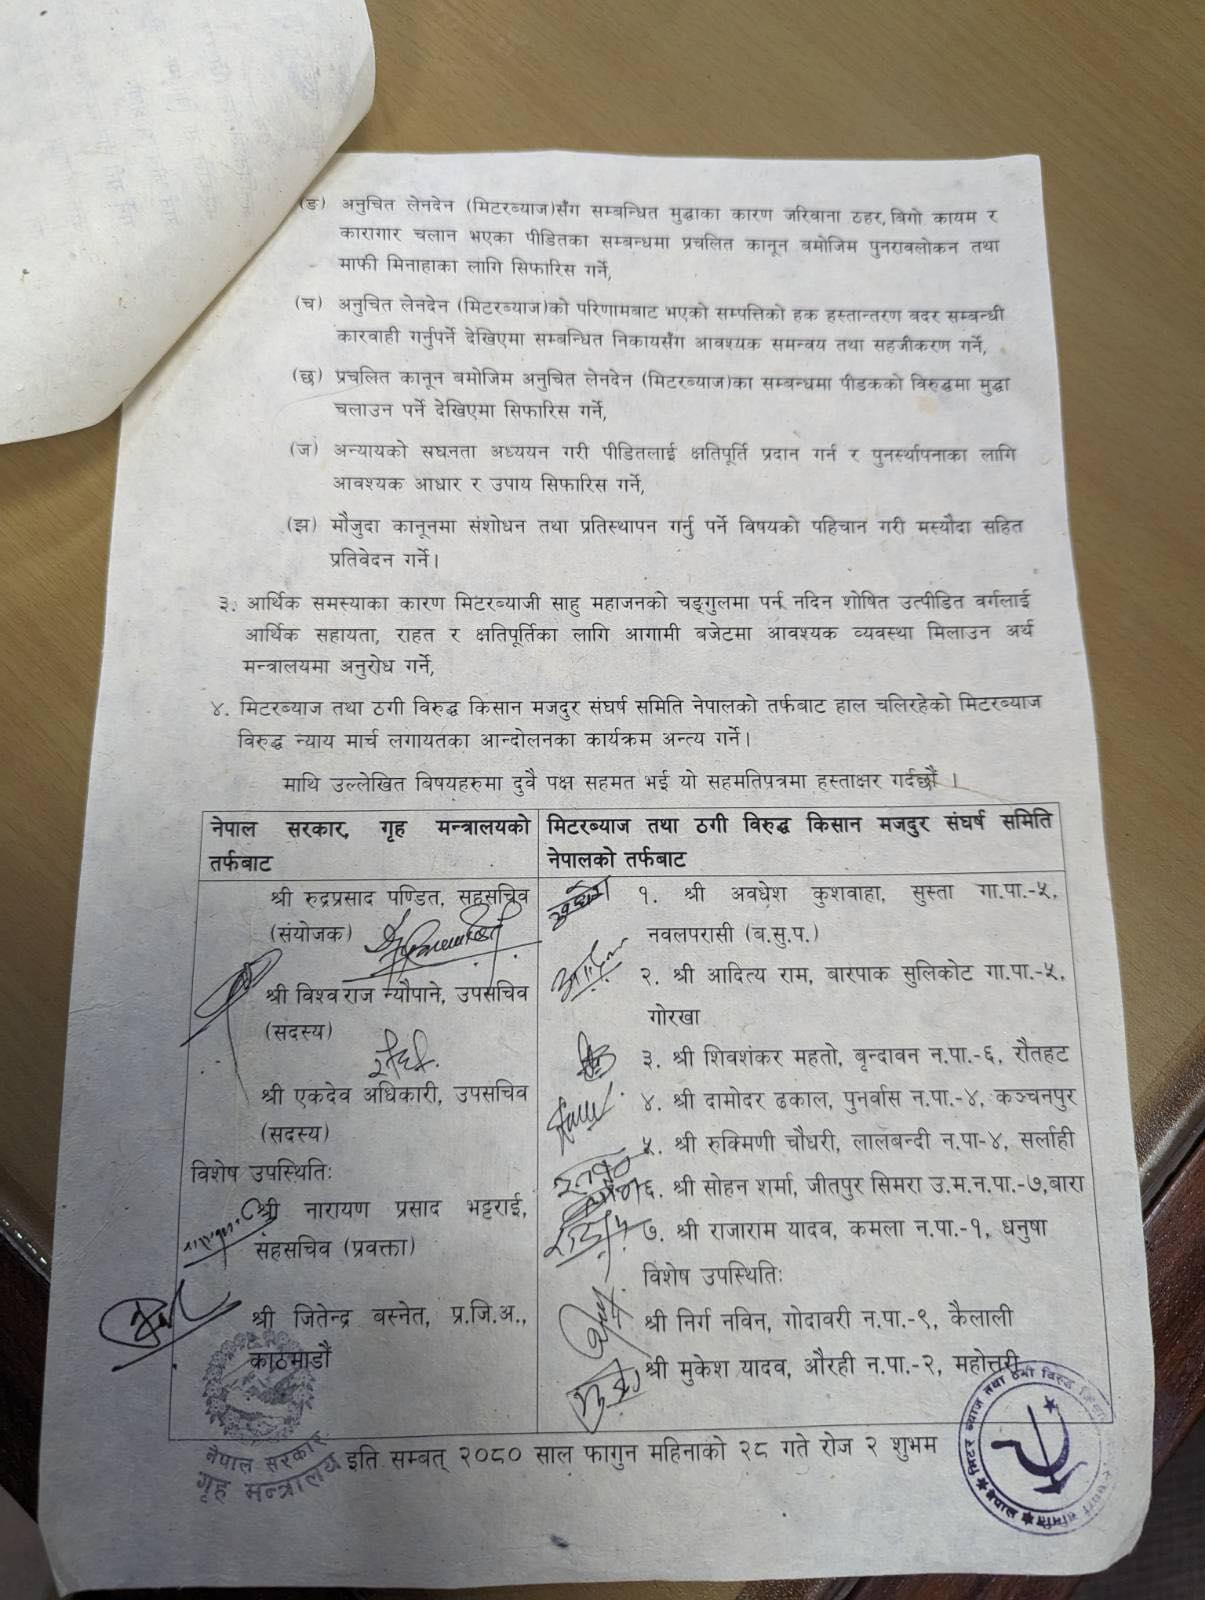 (ङ) अनुचित लेनदेन (मिटरब्याज)सँग सम्बन्धित मुद्दाका कारण जरिवाना ठहर, बिगो कायम र
कारागार चलान भएका पीडितका सम्बन्धमा प्रचलित कानून बमोजिम पुनरावलोकन तथा
माफी मिनाहाका लागि सिफारिस गर्ने,
(च) अनुचित लेनदेन (मिटरब्याज)को परिणामबाट भएको सम्पत्तिको हक हस्तान्तरण बदर सम्बन्धी
कारवाही गर्नुपर्ने देखिएमा सम्बन्धित निकायसँग आवश्यक समन्वय तथा सहजीकरण गर्ने,
(छ) प्रचलित कानून बमोजिम अनुचित लेनदेन (मिटरब्याज)का सम्बन्धमा पीडकको विरुद्धमा मुद्दा
चलाउन पर्ने देखिएमा सिफारिस गर्ने,
(ज) अन्यायको सघनता अध्ययन गरी पीडितलाई क्षतिपूर्ति प्रदान गर्न र पुनर्स्थापनाका लागि
आवश्यक आधार र उपाय सिफारिस गर्ने,
(झ) मौजुदा कानूनमा संशोधन तथा प्रतिस्थापन गर्नु पर्ने विषयको पहिचान गरी मस्यौदा सहित
प्रतिवेदन गर्ने।
३. आर्थिक समस्याका कारण मिटरब्याजी साहु महाजनको चङ्गुलमा पर्न नदिन शोषित उत्पीडित वर्गलाई
आर्थिक सहायता, राहत र क्षतिपूर्तिका लागि आगामी बजेटमा आवश्यक व्यवस्था मिलाउन अर्थ
मन्त्रालयमा अनुरोध गर्ने,
४. मिटरब्याज तथा ठगी विरुद्ध किसान मजदुर संघर्ष समिति नेपालको तर्फबाट हाल चलिरहेको मिटरब्याज
विरुद्ध न्याय मार्च लगायतका आन्दोलनका कार्यक्रम अन्त्य गर्ने।
माथि उल्लेखित बिषयहरुमा दुवै पक्ष सहमत भई यो सहमतिपत्रमा हस्ताक्षर गर्दछौं ।
नेपाल सरकार, गृह मन्त्रालयको
तर्फबाट
श्री रुद्रप्रसाद पण्डित, सहसचिव
(संयोजक)
श्री विश्वराज न्यौपाने, उपसचिव
(सदस्य)
श्री एकदेव अधिकारी, उपसचिव
(सदस्य)
विशेष उपस्थितिः
श्री नारायण प्रसाद भट्टराई,
सहसचिव (प्रवक्ता)
श्री जितेन्द्र बस्नेत, प्र.जि.अ.,
काठमाडौं
मिटरब्याज तथा ठगी विरुद्ध किसान मजदुर संघर्ष समिति
नेपालको तर्फबाट
१. श्री अवधेश कुशवाहा, सुस्ता गा.पा.-५,
नवलपरासी (ब.सु.प.)
२. श्री आदित्य राम, बारपाक सुलिकोट गा.पा.-५,
गोरखा
३. श्री शिवशंकर महतो, बृन्दावन न.पा.-६, रौतहट
४. श्री दामोदर ढकाल, पुनर्वास न.पा.-४, कञ्चनपुर
५. श्री रुक्मिणी चौधरी, लालबन्दी न.पा-४, सर्लाही
६. श्री सोहन शर्मा, जीतपुर सिमरा उ.म.न.पा.-७,बारा
७. श्री राजाराम यादव, कमला न.पा.-१, धनुषा
विशेष उपस्थितिः
श्री निर्ग नविन, गोदावरी न.पा.-९, कैलाली
श्री मुकेश यादव, औरही न.पा.-२, महोत्तरी
इति सम्बत् २०८० साल फागुन महिनाको २८ गते रोज २ शुभम
नेपाल सरकार
गृह मन्त्रालय
मिटर ब्याज तथा ठगी विरुद्ध
नेपाल